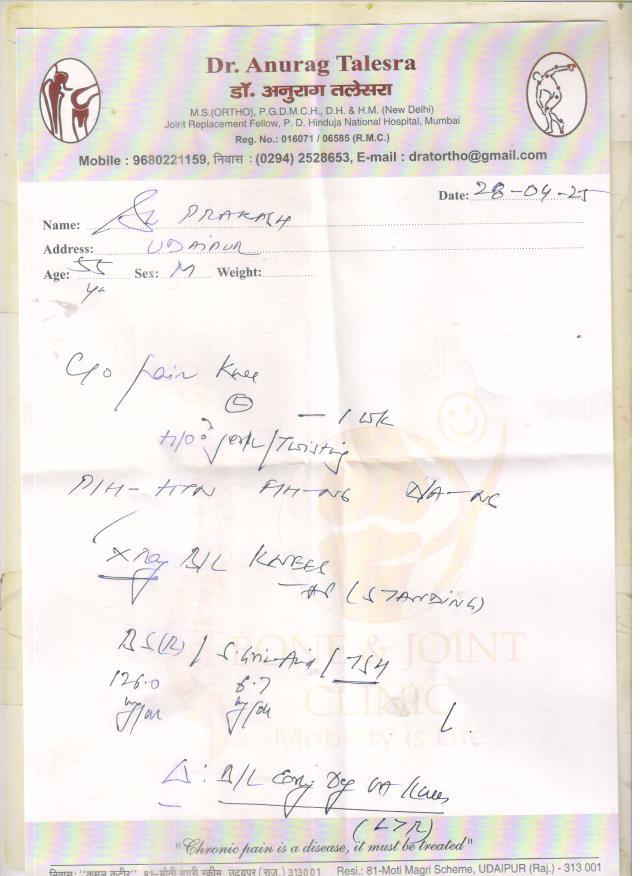 Dr. Anurag Talesra
डॉ. अनुराग तलेसरा
M.S.(ORTHO), P.G.D.M.C.H., D.H. & H.M. (New Delhi)
Joint Replacement Fellow, P. D. Hinduja National Hospital, Mumbai
Reg. No.: 016071 / 06585 (R.M.C.)
Mobile : 9680221159, निवास : (0294) 2528653, E-mail : dratortho@gmail.com
Date: 28-04-25
Name: PRAKASH
Address: UDAIPUR
Age: 55 Sex: M Weight:
C/o pain Knee
(L)
— 1 wk
H/O jerk/Twisting
P/H- HTN F/H-NS D/A-NS
Xray B/L KNEES
- AP (STANDING)
BS(R) / S. Uric Acid / TSH
126.0 6.7
mg/dl mg/dl
BONE & JOINT
CLINIC
Mobility is Life
Δ: B/L Early Deg OA Knees
(L>R)
"Chronic pain is a disease, it must be treated"
निवास: "कमल कुटीर" 81-मोती मगरी स्कीम, उदयपुर (राज.) 313001 Resi.: 81-Moti Magri Scheme, UDAIPUR (Raj.) - 313 001